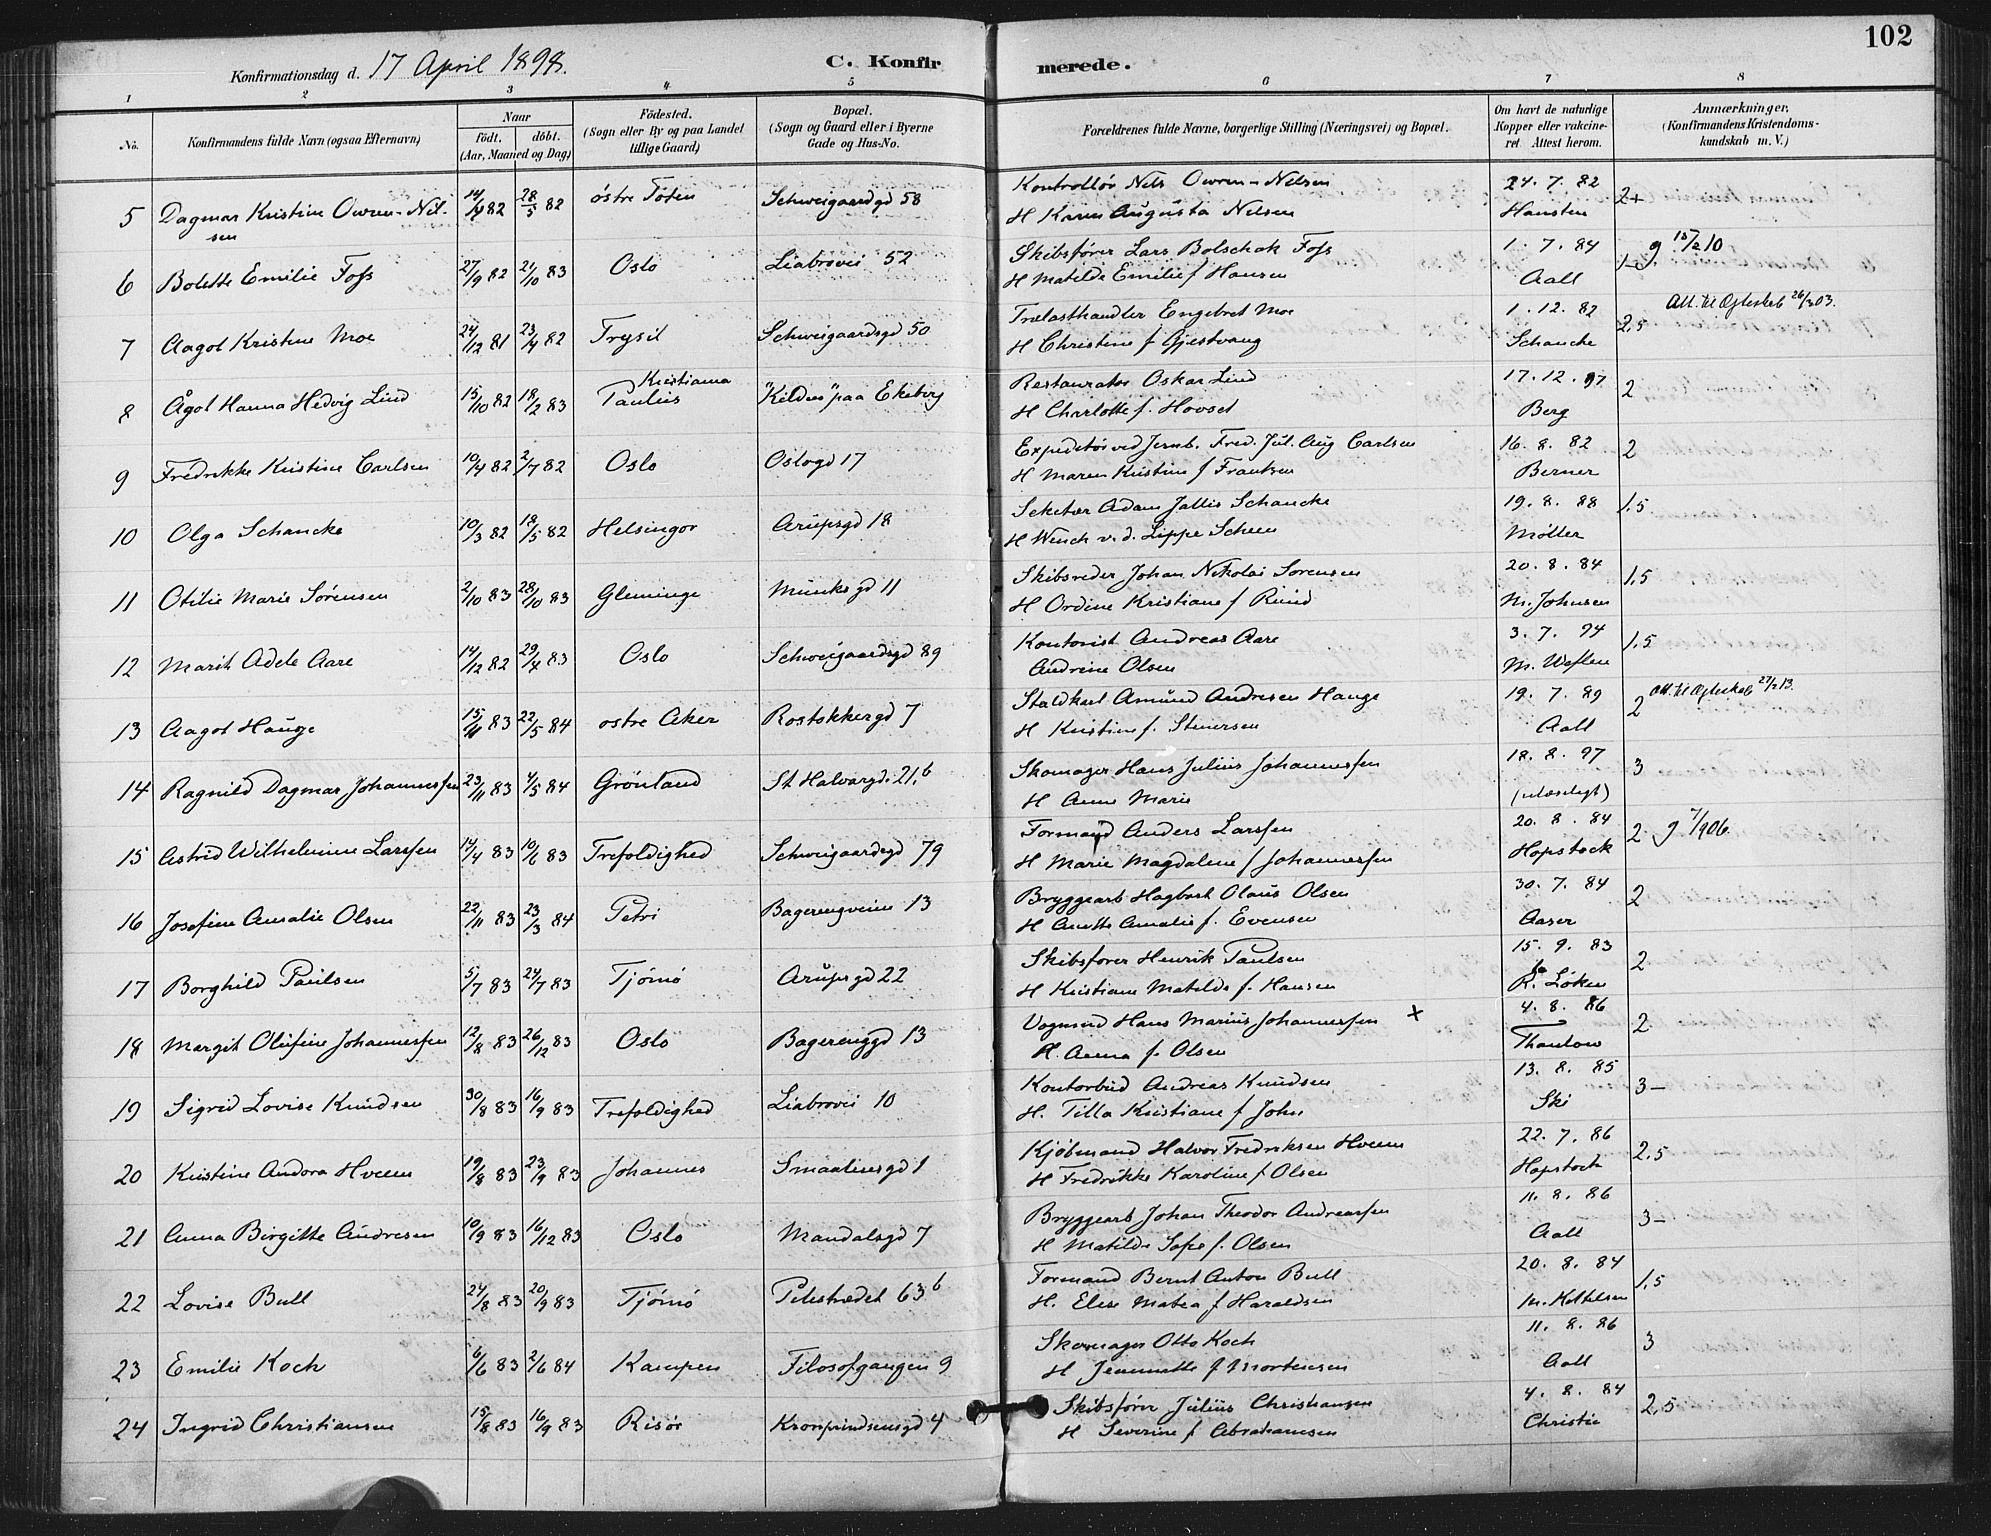 102
Konfirmationsdag d. 17 April 1898.
C. Konfirmerede.
1 2 3 4 5 6 7 8
No. Konfirmandens fulde Navn (ogsaa Efternavn)
Naar
födt. döbt.
(Aar, Maaned og Dag)
Födested.
(Sogn eller By og paa Landet
tillige Gaard)
Bopæl.
(Sogn og Gaard eller i Byerne
Gade og Hus-No.
Forældrenes fulde Navne, borgerlige Stilling (Næringsvei) og Bopæl.
Om havt de naturlige
Kopper eller vakcine-
ret. Attest herom.
Anmærkninger.
(Konfirmandens Kristendoms-
kundskab m. V.)
5 Dagmar Kristine Owren-Nil-
sen
14/4 82 28/5 82 östre Toten Schweigaardgd 58 Kontrollör Nils Owren-Nelsen 24. 7. 82 2+
H Karen Augusta Nelsen Hansten
6 Bolette Emilie Foss 27/9 82 21/10 83 Oslo Liabrovei 52 Skibsfører Lars Bolschak Foss 1. 7. 84 1- g 15/2 10
H Matilde Emilie f Hansen Aall
7 Aagot Kristine Moe 24/12 81 23/4 82 Trysil Schweigaardsgd 50 Trælasthandler Engebret Moe 1. 12. 82 2,5 Att. til Ægteskab 26/3 03.
H Christine f Gjestvang Schancke
8 Ågot Hanna Hedvig Lind 13/10 82 18/2 83 Kristiania
Paulus "Kilden" paa Ekeberg Restauratør Oskar Lind 17. 12. 97 2
H Charlotte f. Hovset Berg
9 Fredrikke Kristine Carlsen 10/4 82 2/7 82 Oslo Oslogd 17 Expeditör ved Jernb. Fred. Jul. Aug Carlsen 16. 8. 82 2
H Maren Kristine f Frantzen Berner
10 Olga Schancke 10/3 82 18/5 82 Helsingør Arupsgd 18 Seketær Adam Jallis Schancke 19. 8. 88 1.5
H Wench v. d. Lippe Scheen Møller
11 Otilie Marie Sörensen 2/10 83 28/10 83 Gleminge Munksgd 11 Skibsreder Johan Nikolai Sorensen 20. 8. 84 1,5
H Ordine Kristiane f Ruud M. Johnsen
12 Marit Adele Aare 14/12 82 29/4 83 Oslo Schweigaardsgd 89 Kontorist Andreas Aare 3. 7. 94 1,5
Andrine Olsen
13 Aagot Hauge 15/11 83 22/5 84 ostre Aker Rostokkergd 7 Staldkarl Amund Andresen Hauge 19. 7. 89 2 Att. til Ægteskab 27/2 13.
H Kristine f. Steuersen Aall
14 Ragnild Dagmar Johannessen 23/11 83 4/5 84 Grönland St Halvargd. 21,b Skomager Hans Julius Johannessen 18. 8. 97 3
H Anne Marie (ulæseligt)
15 Astrid Wilhelmine Larssen 14/4 83 10/6 83 Trefoldighed Schweigaardsgd 79 Formand Anders Larssen 20. 8. 84 2 g 7/9 06.
H Marie Magdalene f Johannessen Hopstock
16 Josefine Amalie Olsen 22/11 83 23/3 84 Petri Bagerengveien 13 Bryggearb Hagbart Olaus Olsen 30. 7. 84 2
H Anette Amalie f. Evensen Aaser
17 Borghild Paulsen 5/7 83 24/7 83 Tjömö Arupsgd 22 Skibsfører Henrik Paulsen 15. 9. 83 2
H Kristiane Matilde f. Hansen R. Løken
18 Margit Olufine Johannessen 12/8 83 26/12 83 Oslo Bagerenggd 13 Vognmd Hans Marius Johannessen x 4. 8. 86 2
H. Anna f. Olsen Thaulow
19 Sigrid Lovise Knudsen 30/8 83 16/9 83 Trefoldighed Liabrovei 10 Kontorbud Andreas Knudsen 13. 8. 85 3-
H. Tilla Kristiane f John Ski
20 Kristine Andora Hveem 19/8 83 23/9 83 Johannes Smaalensgd 1 Kjöbmand Halvor Fredriksen Hveem 22. 7. 86 2,5
H Fredrikke Karoline f Olsen Hopstock
21 Anna Birgitte Andresen 10/9 83 16/12 83 Oslo Mandalsgd 7 Bryggearb Johan Theodor Andreassen 11. 8. 86 3-
H Matilde Sofie f. Olsen Aall
22 Lovise Bull 24/8 83 20/9 83 Tjömö Pilestrædet 63 b Formand Bernt Anton Bull 20. 8. 84 1,5
H. Elise Matea f Haraldsen
23 Emilie Koch 6/6 83 2/6 84 Kampen Filosofgangen 9 Skomager Otto Koch 11. 8. 86 3
H Jeannette f Mortensen Aall
24 Ingrid Christiansen 15/8 83 16/9 83 Risör Kronprindsensgd 4 Skibsfører Julius Christiansen 4. 8. 84 2,5
H Severine f Abrahamsen Christie